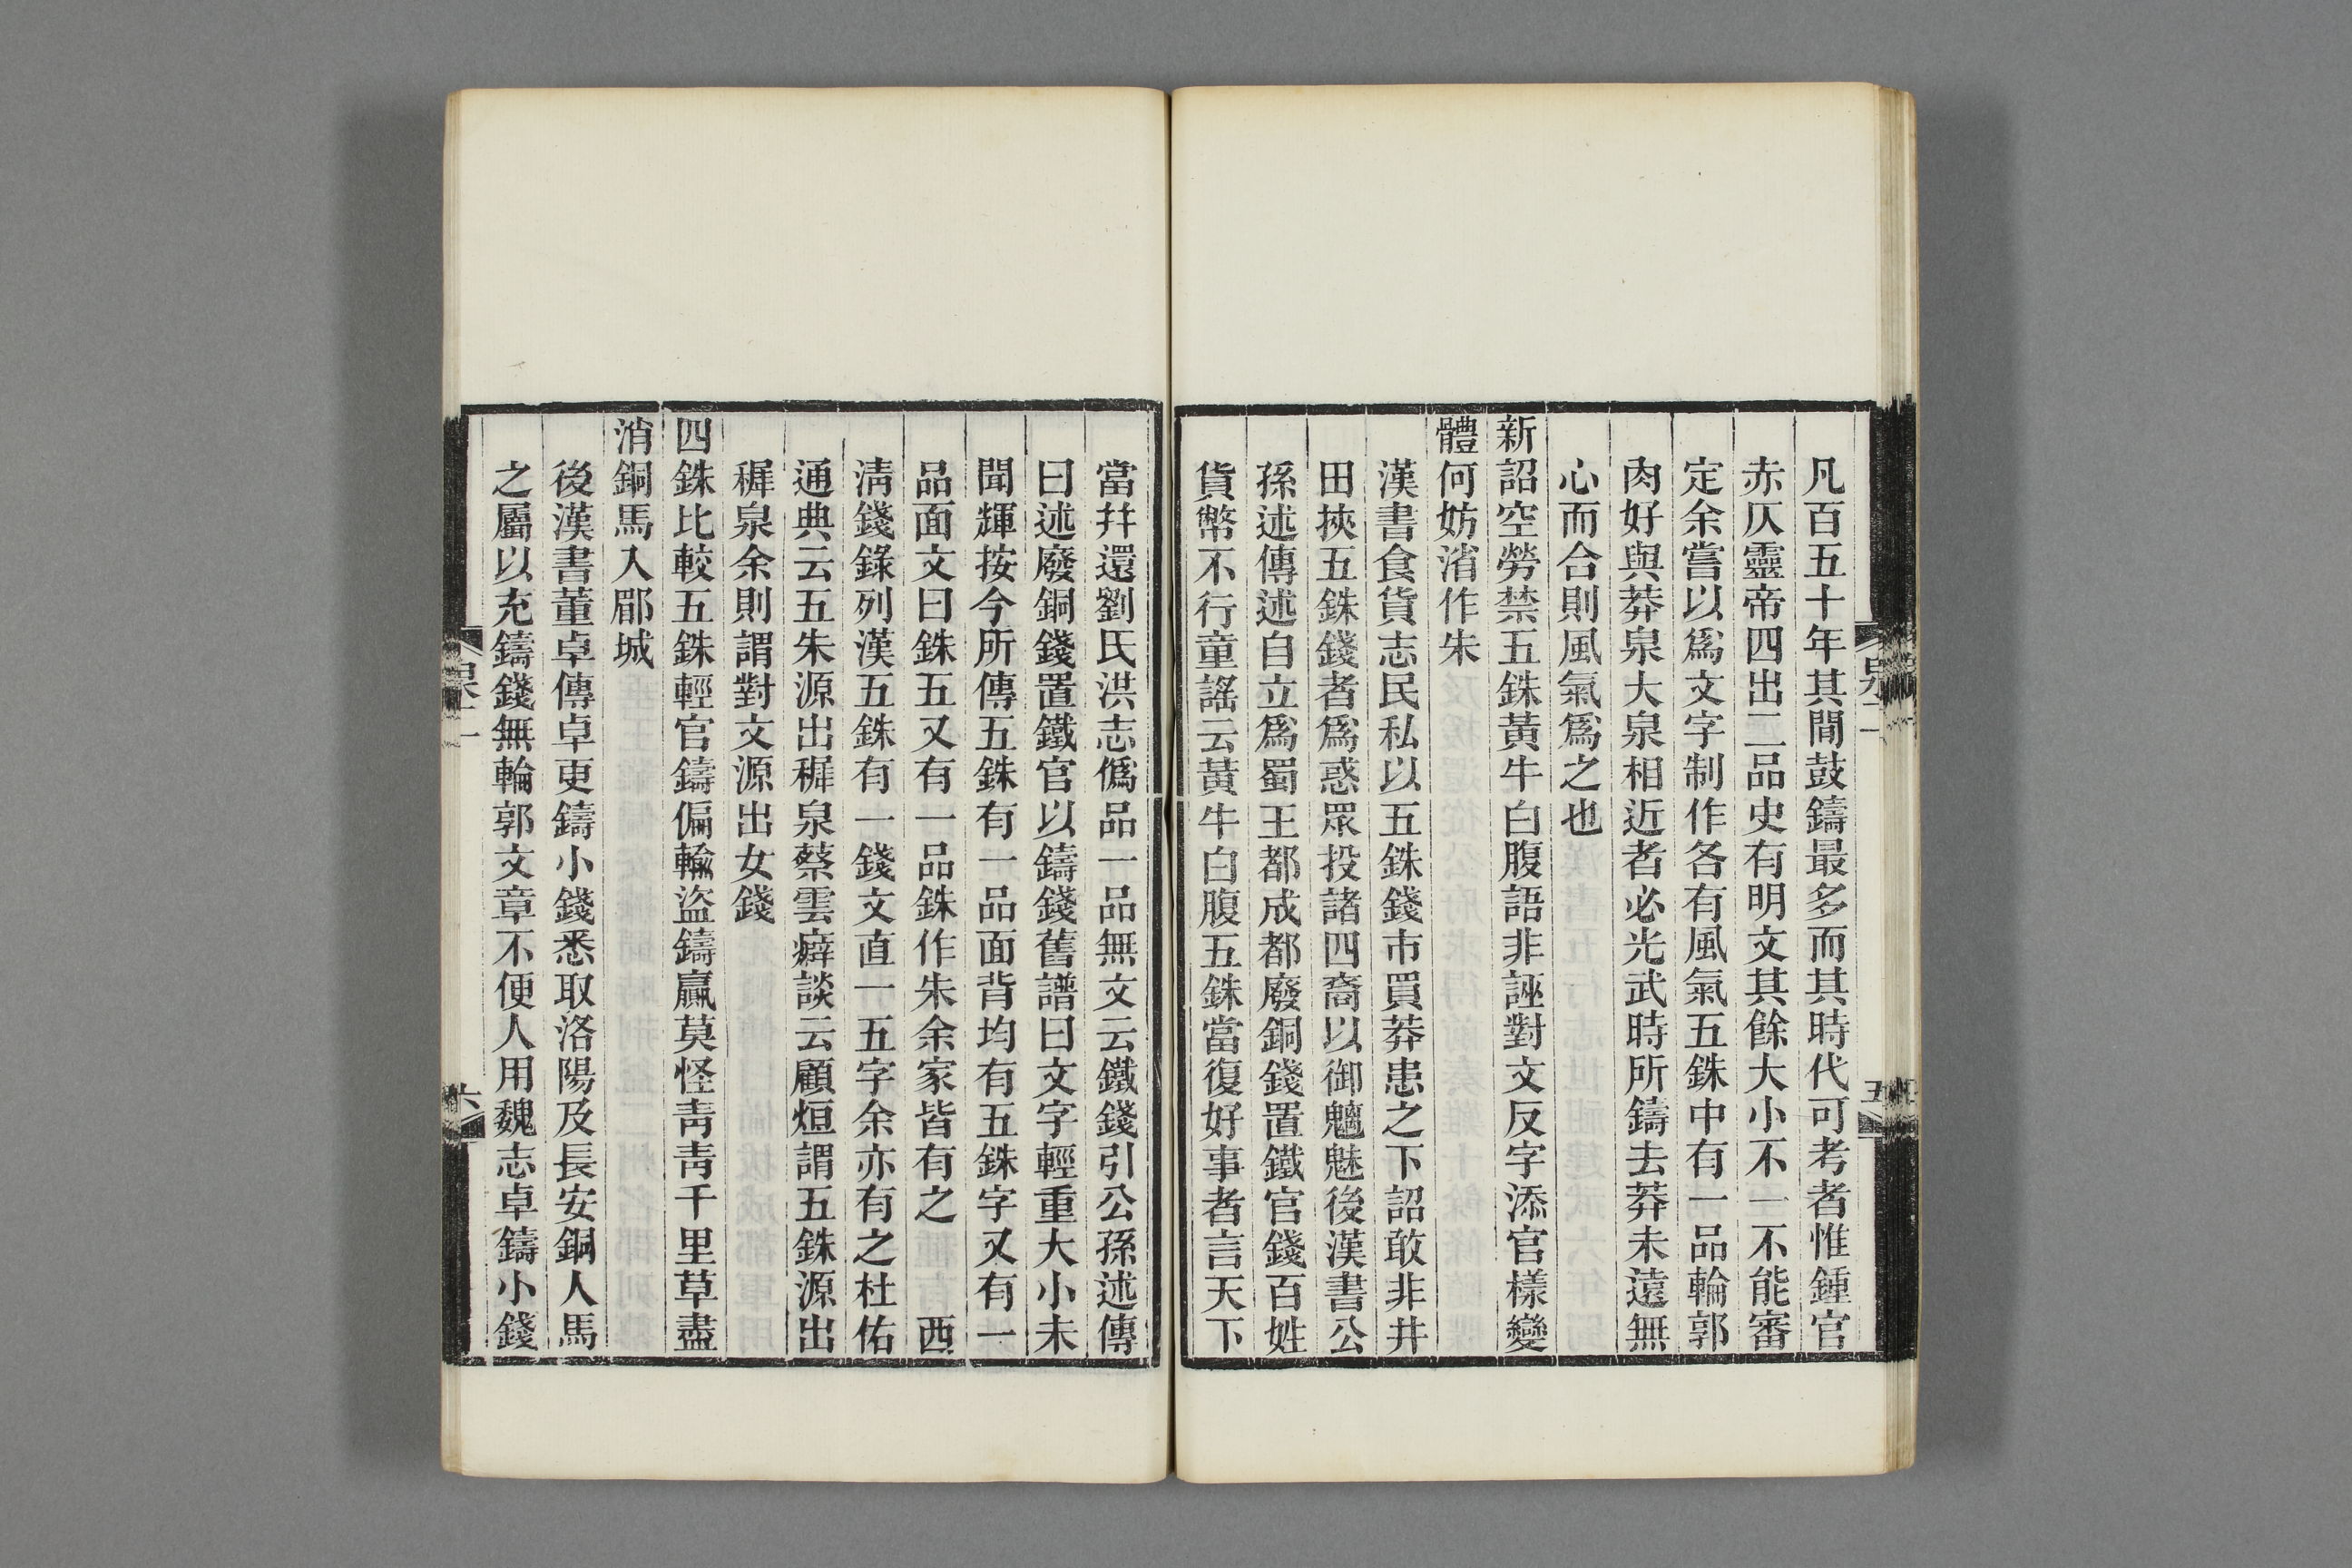 凡百五十年其間鼓鑄最多而其時代可考者惟鍾官
赤仄靈帝四出二品史有明文其餘大小不一不能審
定余嘗以爲文字制作各有風氣五銖中有一品輪郭
肉好與莽泉大泉相近者必光武時所鑄去莽未遠無
心而合則風氣爲之也
新詔空勞禁五銖黃牛白腹語非誣對文反字添官樣變
體何妨消作朱
漢書食貨志民私以五銖錢市買莽患之下詔敢非井
田挾五銖錢者爲惑眾投諸四裔以御魑魅後漢書公
孫述傳述自立爲蜀王都成都廢銅錢置鐵官錢百姓
貨幣不行童謠云黃牛白腹五銖當復好事者言天下
當幷還劉氏洪志僞品一品無文云鐵錢引公孫述傳
曰述廢銅錢置鐵官以鑄錢舊譜曰文字輕重大小未
聞輝按今所傳五銖有一品面背均有五銖字又有一
品面文曰銖五又有一品銖作朱余家皆有之　西
淸錢錄列漢五銖有一錢文直一五字余亦有之杜佑
通典云五朱源出稺泉蔡雲癖談云顧烜謂五銖源出
稺泉余則謂對文源出女錢
四銖比較五銖輕官鑄偏輸盜鑄贏莫怪靑靑千里草盡
消銅馬入郿城
後漢書董卓傳卓更鑄小錢悉取洛陽及長安銅人馬
之屬以充鑄錢無輪郭文章不便人用魏志卓鑄小錢